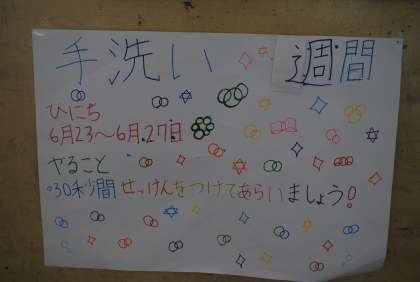 手洗い 週間
ひにち
6月23〜6月.27日
やること
•30秒間せっけんをつけてあらいましょう!